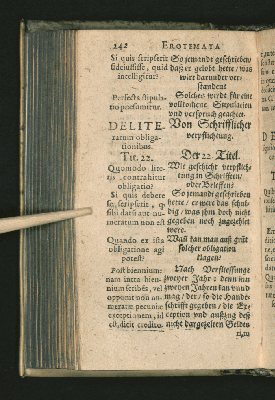 242 EROTEMATA
Si quis scripserit
fideiussisse, quid
intelligitur?
So jemand geschrieben/
daß er gelobt hette/ was
wirt darunder ver-
standen?
Perfecta stipula-
tio præsumitur.
Solches wirdt für eine
vollkom̃ene Stipulation
und versprüch geachtet.
DE LITE-
rarum obliga-
tionibus.
Tit. 22.
Von Schrifftlicher
verpflichtung.
Der 22. Titel.
Quomodo lite-
ris contrahitur
obligatio?
Wie geschicht verpflich-
tung in Schrifften/
oder Brieffen?
Si quis debere
se scripserit, q̃
sibi datũ aut nu-
meratum non est
So jemand geschrieben
hette/ er were das schul-
dig/ was ihm doch nicht
gegeben noch zugezehlet
were.
Quando ex ista
obligatione agi
potest?
Wañ kan man auß
solcher obligation
klagen?
Post biennium:
nam intra bien-
nium
opponi
meratæ pecuniæ
exceptionem, id
est, dicit credito-
Nach Verfliessung
zweyer Jahr: denn inn
zweyen Jahren kan
mag/ der/ so die Handt-
schrifft gegeben/ die Ex-
ception und außzug deß
nicht dargezelten Geldes